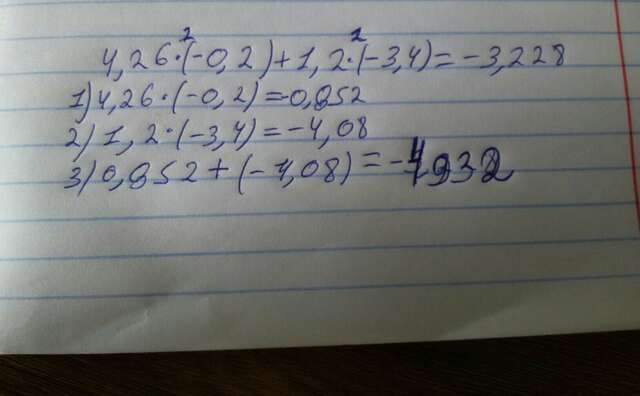 2 1
4,26·(-0,2)+1,2·(-3,4)=-3,228
1)4,26·(-0,2)=-0,852
2)1,2·(-3,4)=-4,08
3)0,852+(-4,08)=-4932